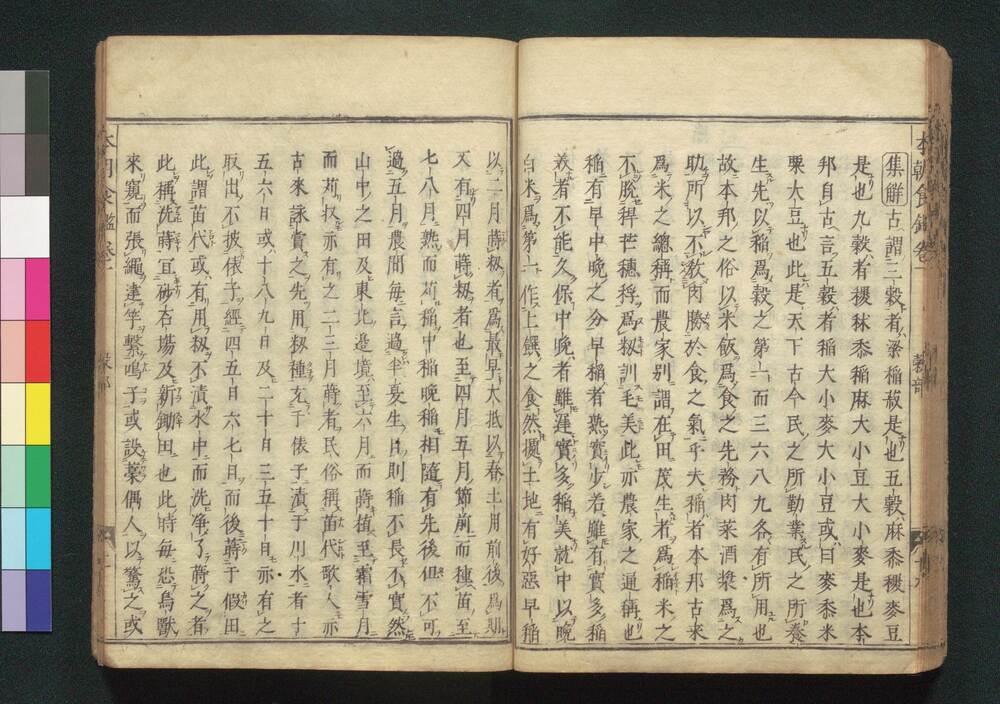 集觧古謂三穀者粱稲菽是也五穀麻黍稷麥豆
是也九穀者稷秫黍稲麻大小豆大小麥是也本
邦自古言五穀者稲大小麥大小豆或曰麥黍米
粟大豆也此是天下古今民之所勤業民之所養
生先以稲爲穀之第一而三六八九各有所用也
故本邦之俗以米飯爲食之先務肉菜酒漿爲之
助所以不敎肉勝於食之氣乎夫稲者本邦古來
爲米之總稱而農家別謂在田茂生者爲稲米之
不脱稃芒穗稃爲籾訓毛美此亦農家之通稱也
稲有早中晚之分早稲者熟實少若雖有實多稲
美者不能久保中晚者雖遲實多稲美就中以晚
白米爲第一作上饌之食然擾土地有好惡早稲
以二月蒔籾者爲最早大抵以春土用前後爲期
又有四月蒔籾者也至四月五月節前而種苗至
七八月熟而苅稲中稲晚稲相隨有先後但不可
過五月農間毎言過半夏生日則稲不長不實然
山中之田及東北邉境至六月而蒔植至霜雪月
而苅收亦有之二三月蒔者民俗稱苗代歌人亦
古來詠賞之先用籾種玄于俵子漬于川水者十
五六日或十八九日及二十日三五十日亦有之
取出不披俵子經四五日六七日而後蒔于假田
此謂苗代或有用籾不漬水中而洗淨了蒔之者
此稱洗蒔宜砂石塲及新鋤田也此時毎恐鳥獸
來寇而張繩建竿繫鳴子或設藁偶人以驚之或
本朝食鑑卷一
穀部